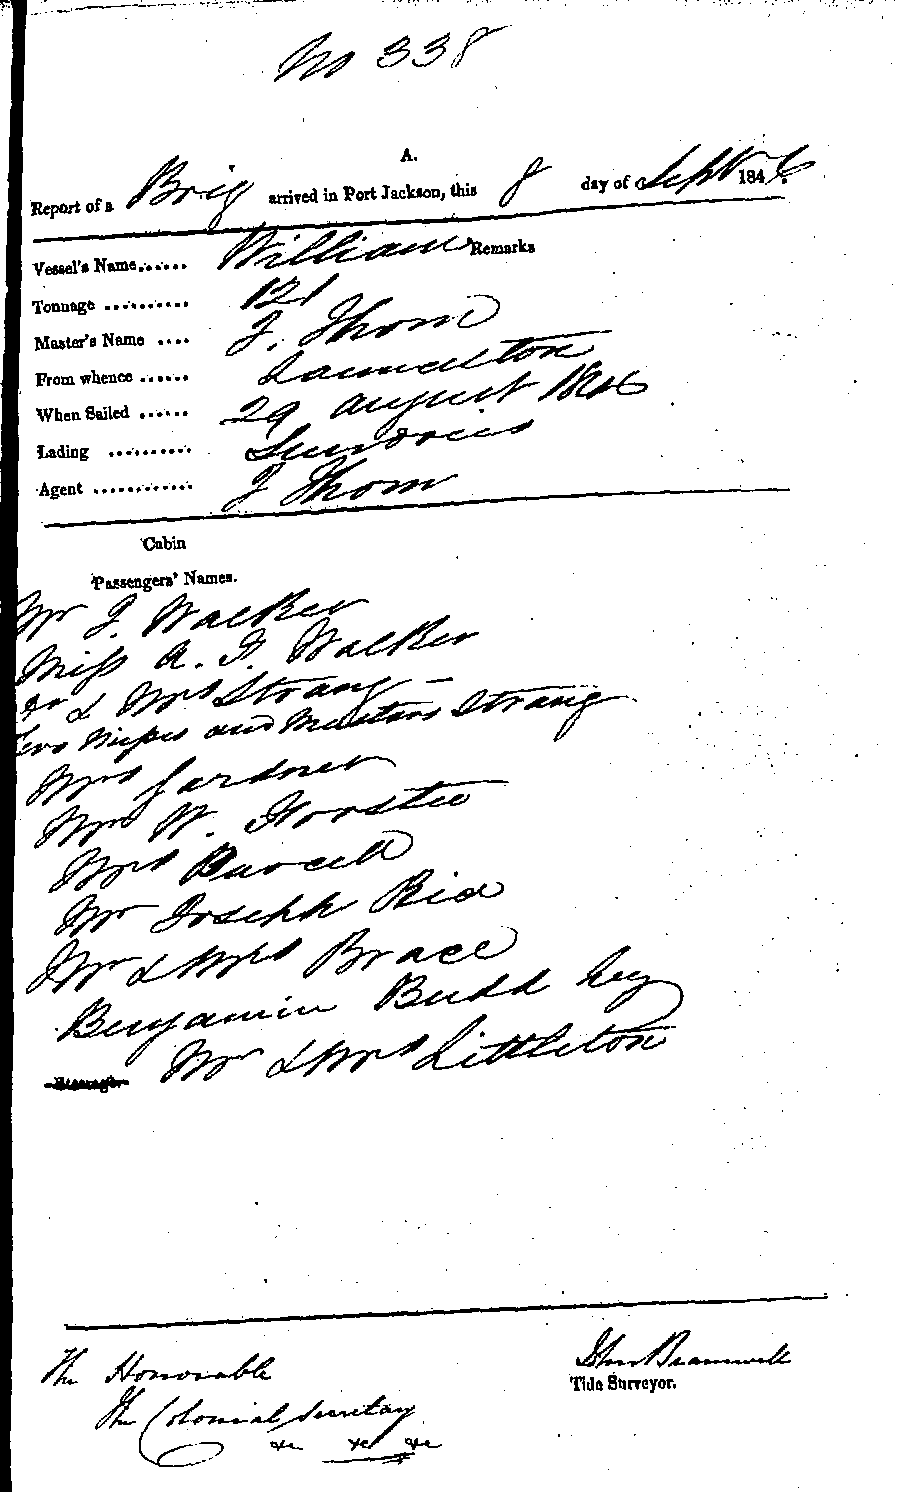 No 338
A.
Report of a Brig arrived in Port Jackson, this 8 day of Septr 1846.
Vessel's Name...... William Remarks
Tonnage .......... 121
Master's Name .... J. Thom
From whence ...... Launceston
When Sailed ...... 29 August 1846
Lading .......... Sundries
Agent ............ J Thom
Cabin
Passengers' Names.
Mr J. Walker
Miss A. F. Walker
Mr & Mrs Strang
Two Misses and Masters Strang
Mrs Gardner
Mrs W. Horstee
Mrs Purcell
Mr Joseph Rice
Mr & Mrs Brace
Benjamin Budd
Mr & Mrs Littleton
The Honorable
The Colonial Secretary
&c &c &c
John Bramwell
Tide Surveyor.